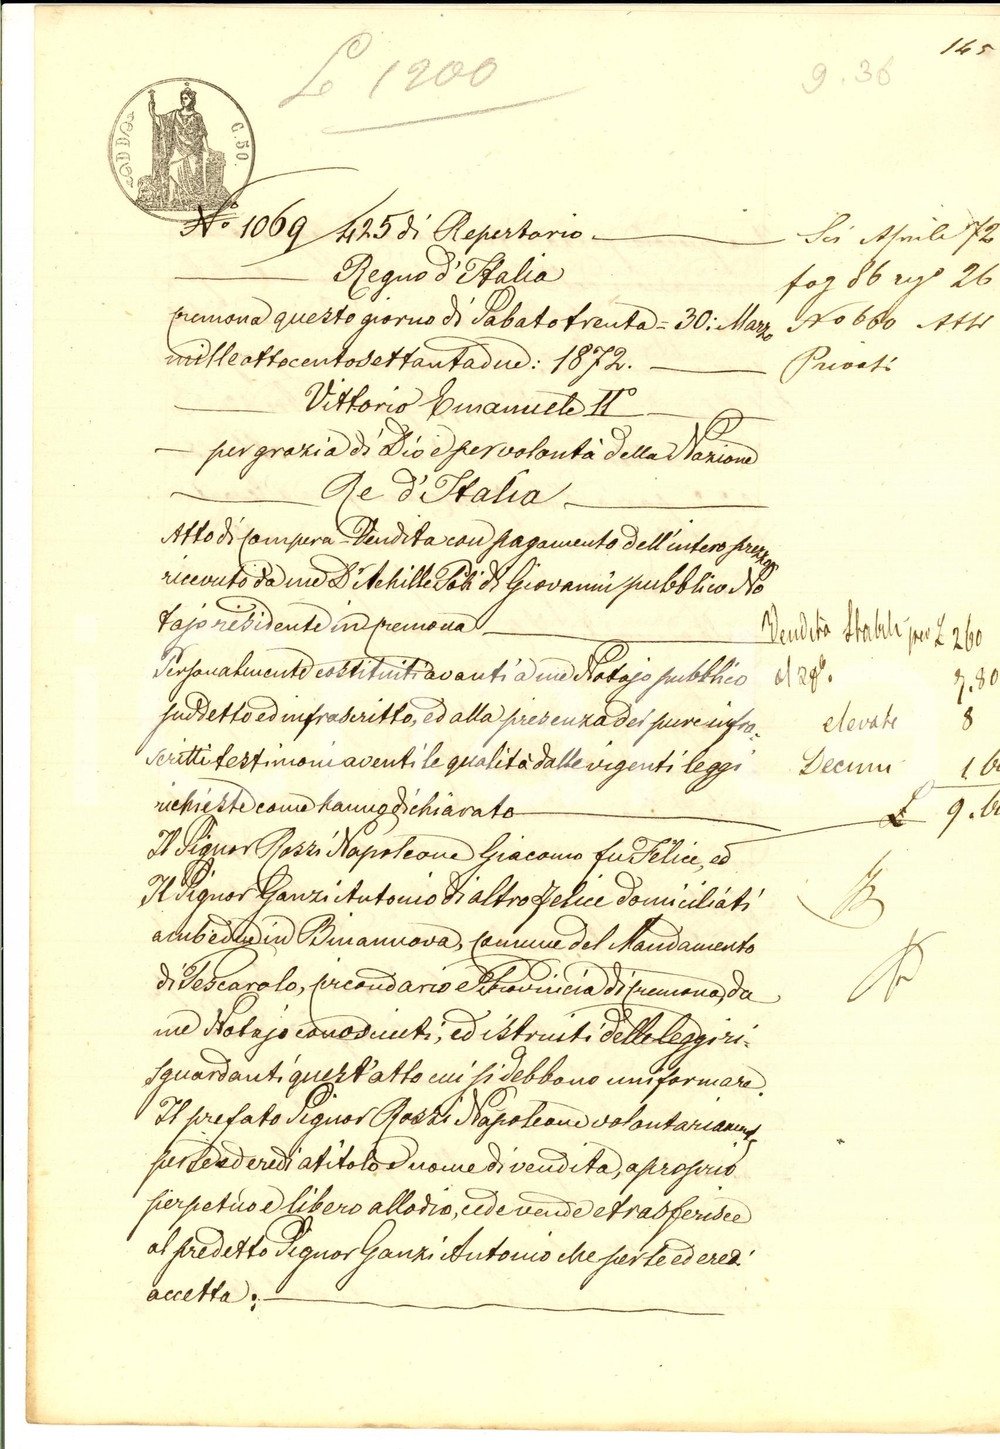 145
L 1200
9.36
C. 50.
N.° 1069 425 di Repertorio
Regno d'Italia
Cremona questo giorno di Sabato trenta = 30: Marzo
mille ottocento settantadue: 1872.
Vittorio Emanuele II°
per grazia di Dio e per volontà della Nazione
Re d'Italia
Atto di Compera-Vendita con pagamento dell'intero prezzo
ricevuto da me D.r Achille di Giovanni pubblico No
tajo residente in Cremona
Personalmente costituiti avanti a me Notajo pubblico
suddetto ed infrascritto, ed alla presenza dei pure infra-
scritti testimoni aventi le qualità dalle vigenti leggi
richieste come hanno dichiarato
Il Signor Rozzi Napoleone Giacomo fu Felice, ed
Il Signor Ganzi Antonio di altro Felice domiciliati
ambedue in Binannova, Comune del Mandamento
di Pescarolo, Circondario e Provincia di Cremona, da
me Notajo conosciuti, ed istruiti delle leggi ri-
sguardanti quest'atto cui si debbono uniformare.
Il prefato Signor Rozzi Napoleone volontariamente
per se ed eredi a titolo e nome di vendita, a proprio
perpetuo e libero allodio, cede vende e trasferisce
al predetto Signor Ganzi Antonio che per se ed eredi
accetta:
Sei Aprile 72
fog 86 26
N° 660 Atti
Privati
Vendita Stabili per L 260
al
7.80
elevate 8
Decimi 1.6
L 9.6